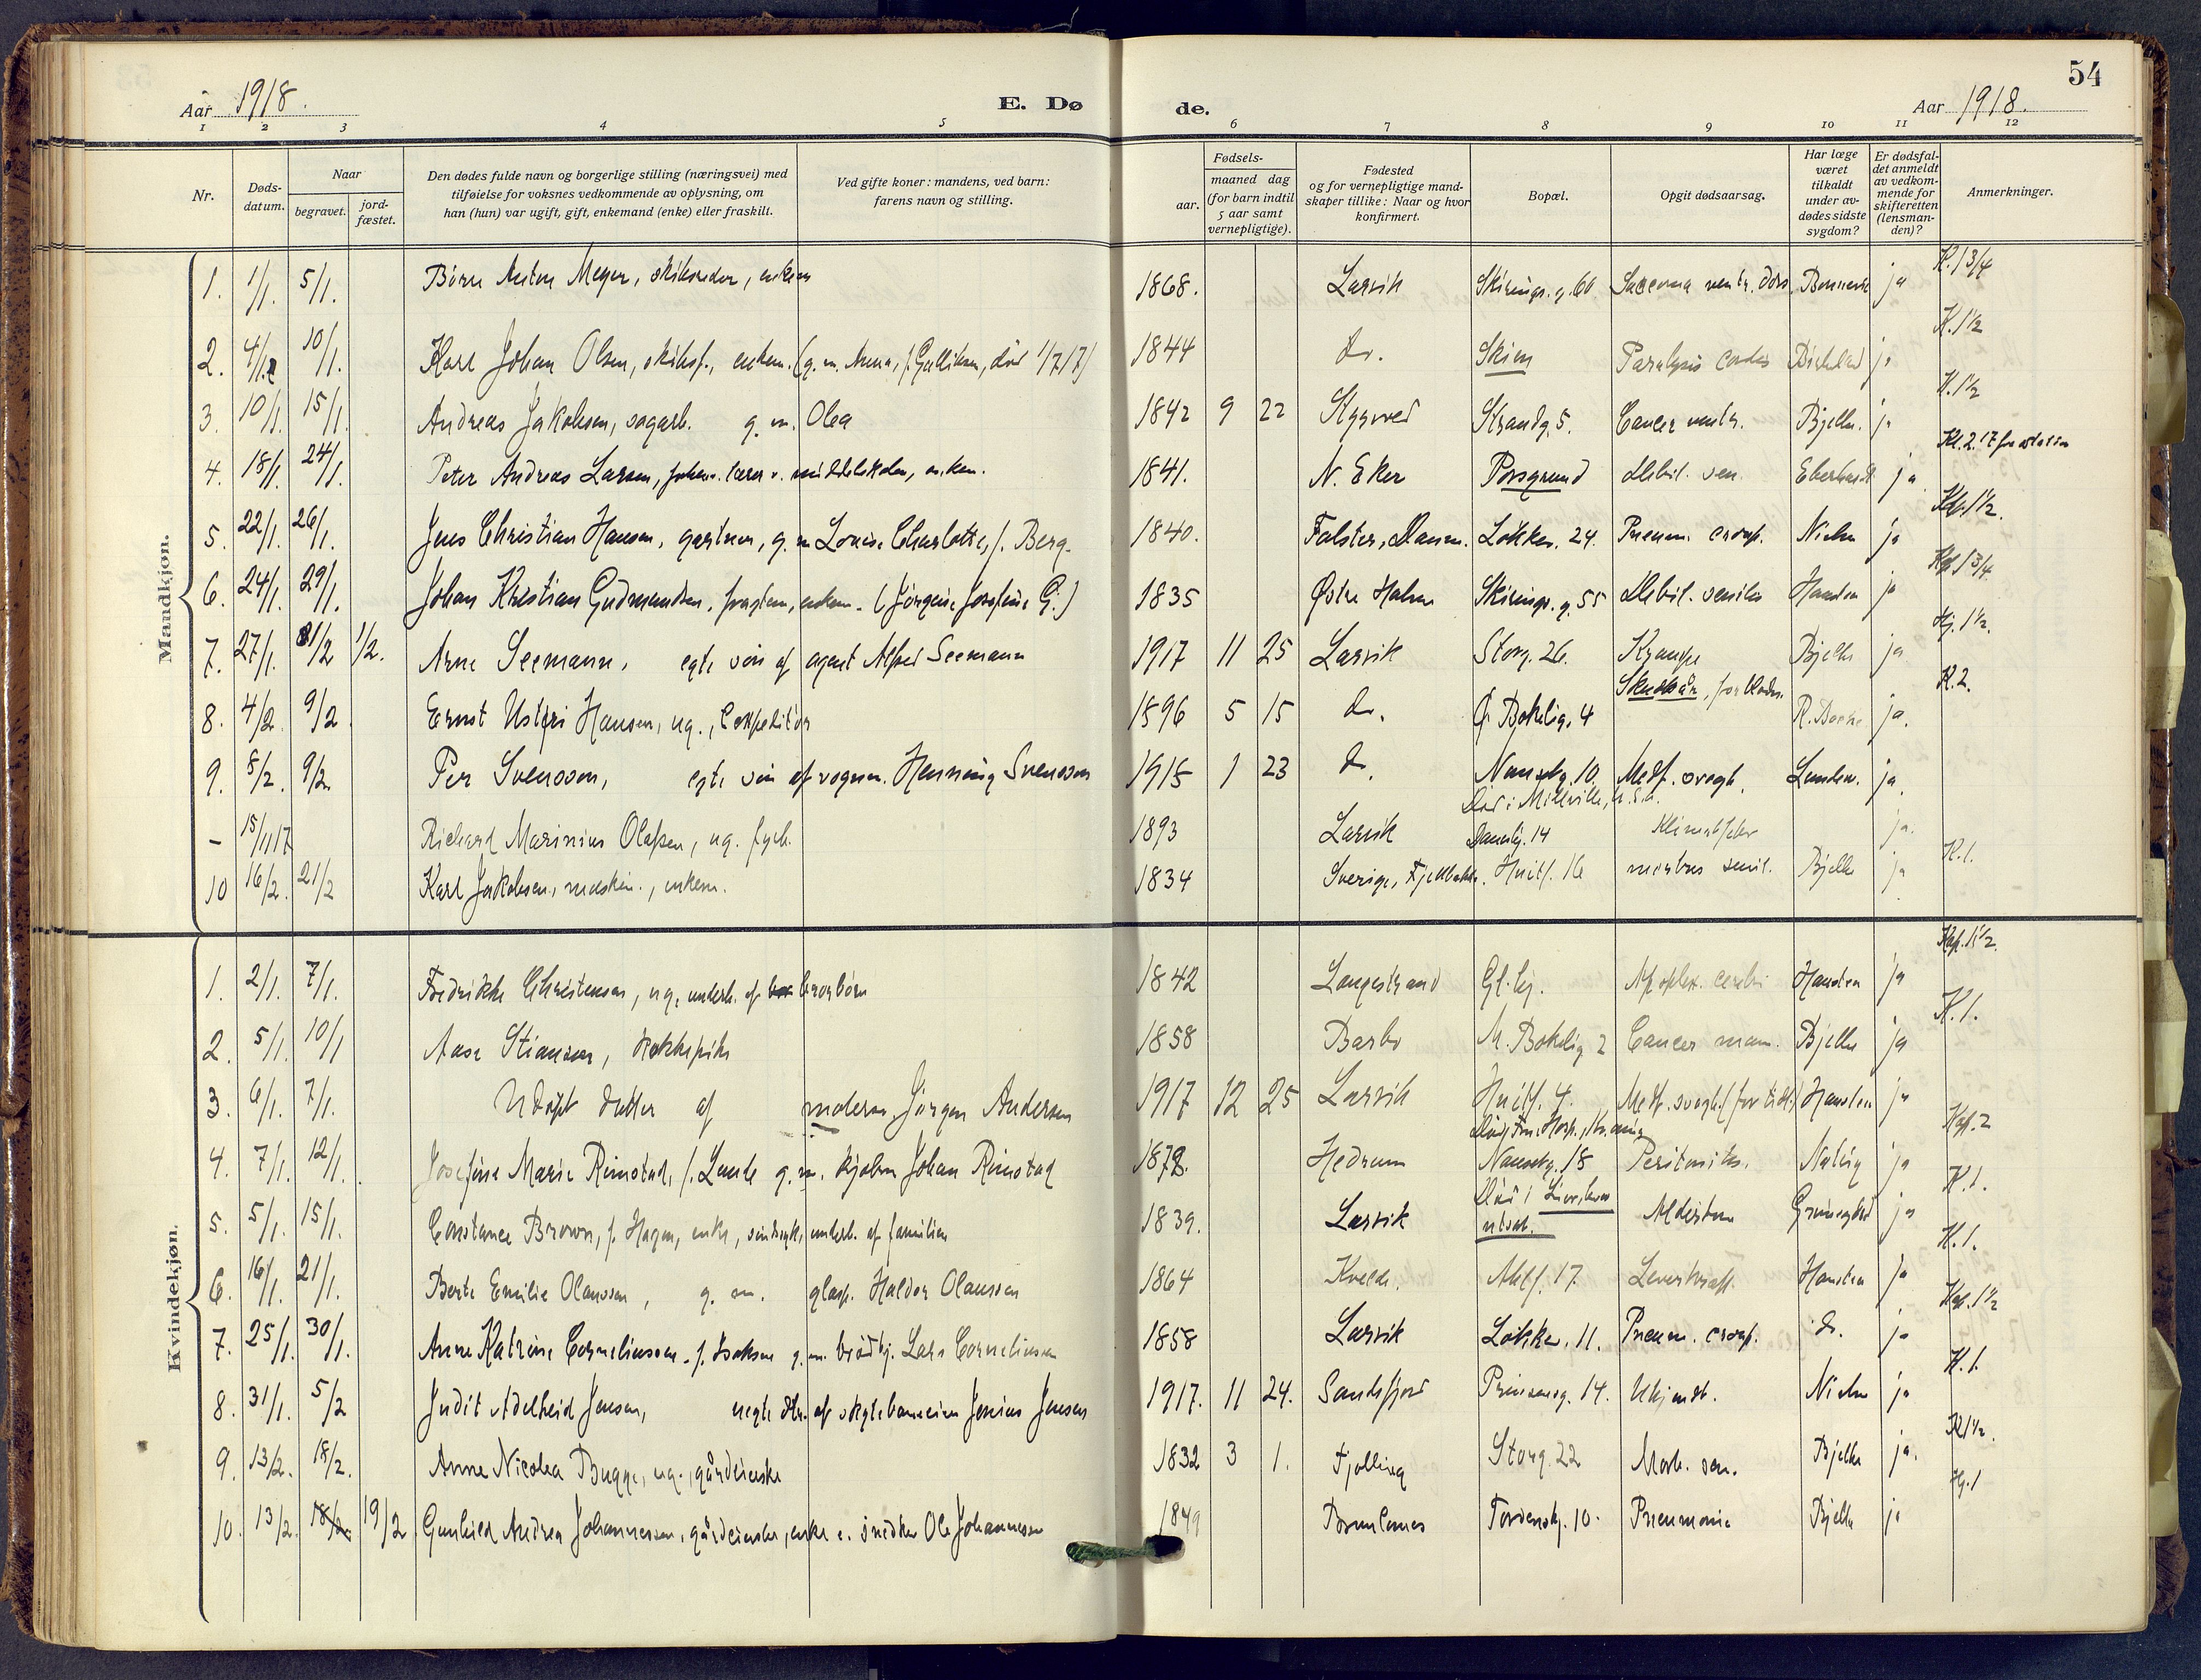 54
Aar 1918.
E. Dø
de.
Aar 1918.
1 2 3 4 5 6 7 8 9 10 11 12
Nr.
Døds-
datum.
Naar
begravet.
jord-
fæstet.
Den dødes fulde navn og borgerlige stilling (næringsvei) med
tilføielse for voksnes vedkommende av oplysning, om
han (hun) var ugift, gift, enkemand (enke) eller fraskilt.
Ved gifte koner: mandens, ved barn:
farens navn og stilling.
Fødsels-
aar.
maaned dag
(for barn indtil
5 aar samt
vernepligtige).
Fødested
og for vernepligtige mand-
skaper tillike: Naar og hvor
konfirmert.
Bopæl.
Opgit dødsaarsag.
Har læge
været
tilkaldt
under av-
dødes sidste
sygdom?
Er dødsfal-
det anmeldt
av vedkom-
mende for
skifteretten
(lensman-
den)?
Anmerkninger.
Mandkjøn.
1. 1/1. 5/1. Anton Meyer, skibsreder, 1868. Larvik Skirings. g. 60 ja K. 1 3/4
2. 4/1. 10/1. Karl Johan Olsen, skibsf., enkem. (g. m. Anna, f. Gulliksen, død 1/7 17) 1844 do. Skien Paralysis cordis ja K. 1 1/2
3. 10/1. 15/1. Andreas Jakobsen, sagarb. g. m. Olea 1842 9 22 Strandg. 5. Cancer ventr. Bjelke. ja K. 1 1/2
4. 18/1. 24/1. Peter Andreas Larsen, lærer v. middelskolen, enkem. 1841. N. Eker Porsgrund Debil. sen. ja
5. 22/1. 26/1. Jens Christian Hansen, gartner, g. m Louise Charlotte, f. Berg. 1840. Falster, Danm. Løkkeg. 24. Pneum. croup. Nielsen ja Kl. 1 1/2.
6. 24/1. 29/1. Johan Kristian Gudmundsen, enkem. (Jørgine Josefine G.) 1835 Østre Halsen Skirings. g. 55 Debil. senilis Hansteen ja Kap. 1 3/4.
7. 27/1. 31/2 1/2. Arne Seemann, egte søn af agent Alfred Seemann 1917 11 25 Larvik Storg. 26. Krampe Bjelke ja Hj. 1 1/2.
8. 4/2. 9/2. Ernst Hansen, ug., Expeditør 1896 5 15 do. Ø. Bøkelig. 4 Skudsår, ja. K. 2.
9. 8/2. 9/2. Per Svensson, egte søn af vognm. Henning Svensson 1918 1 23 do. Nansetg. 10. Medf. svagh. Lunden. ja.
– 15/11 17 Richard Marinius Olafsen, ug. fyrb. 1893 Larvik Død i Millville, U.S.A. ja.
10 16/2. 21/2 Karl Jakobsen, maskin., enkem. 1834 Sverige, Fjellbakk. Huitf. 16 morbus senil. Bjelke ja K. 1.
Kvindekjøn.
1. 2/1. 7/1. Fredrikke Christensen, ug., underh. af brorbørn 1842 Langestrand Gl.hj. Apoplex. cerebri Hansteen ja Kap. 1 1/2.
2. 5/1. 10/1. Aase Stiansen, kokkepike 1858 Barbo N. Bøkelig 2 Cancer mam. Bjelke ja K. 1.
3. 6/1. 7/1. Udøpt datter af møllersv. Jørgen Andersen 1917 12 25 Larvik Huitf. 4. Medf. svagh. (for tidl.) Hansteen ja
4. 7/1. 12/1. Josefine Marie Rimstad, f. Lunde g. m. kjøbm Johan Rimstad 1878. Hedrum Nansetg. 18 Peritonitis. ja Kap. 2
5. 5/1. 15/1. Constance Brown, f. Hagen, enke, sindssyk, underh. af familien 1839. Larvik Alderdom ja K. 1.
6. 16/1. 21/1. Berte Emilie Olaussen, g. m. glasp. Haldor Olaussen 1864 Kvelde. 17. Leverkræft. Hansteen ja K. 1.
7. 25/1. 30/1. Anne Katrine Corneliussen, f. Isaksen g. m. Lars Corneliussen 1858 Larvik Løkkeg. 11. Pneum. croup. do. ja Kap. 1 1/2
8. 31/1. 5/2 Judit Adelheid Jensen, uegte dtr. af Jonius Jensen 1917. 11 24. Sandefjord Prinsensg. 14. Ukjendt. Nielsen ja K. 1.
9. 13/2. 18/2. Anne Nicolea Bugge, ug., gårdeierske 1832 3 1. Tjølling Storg. 22 Morb. sen. Bjelke ja. Kl 1 1/2.
10. 13/2. 18/2. 19/2 Gunhild Andrea Johannessen, gårdeierske, enke e. snedker Ole Johannessen 1849 Brunlanes Tordenskj. 10. Pneumonie Bjelke ja Hj. 1